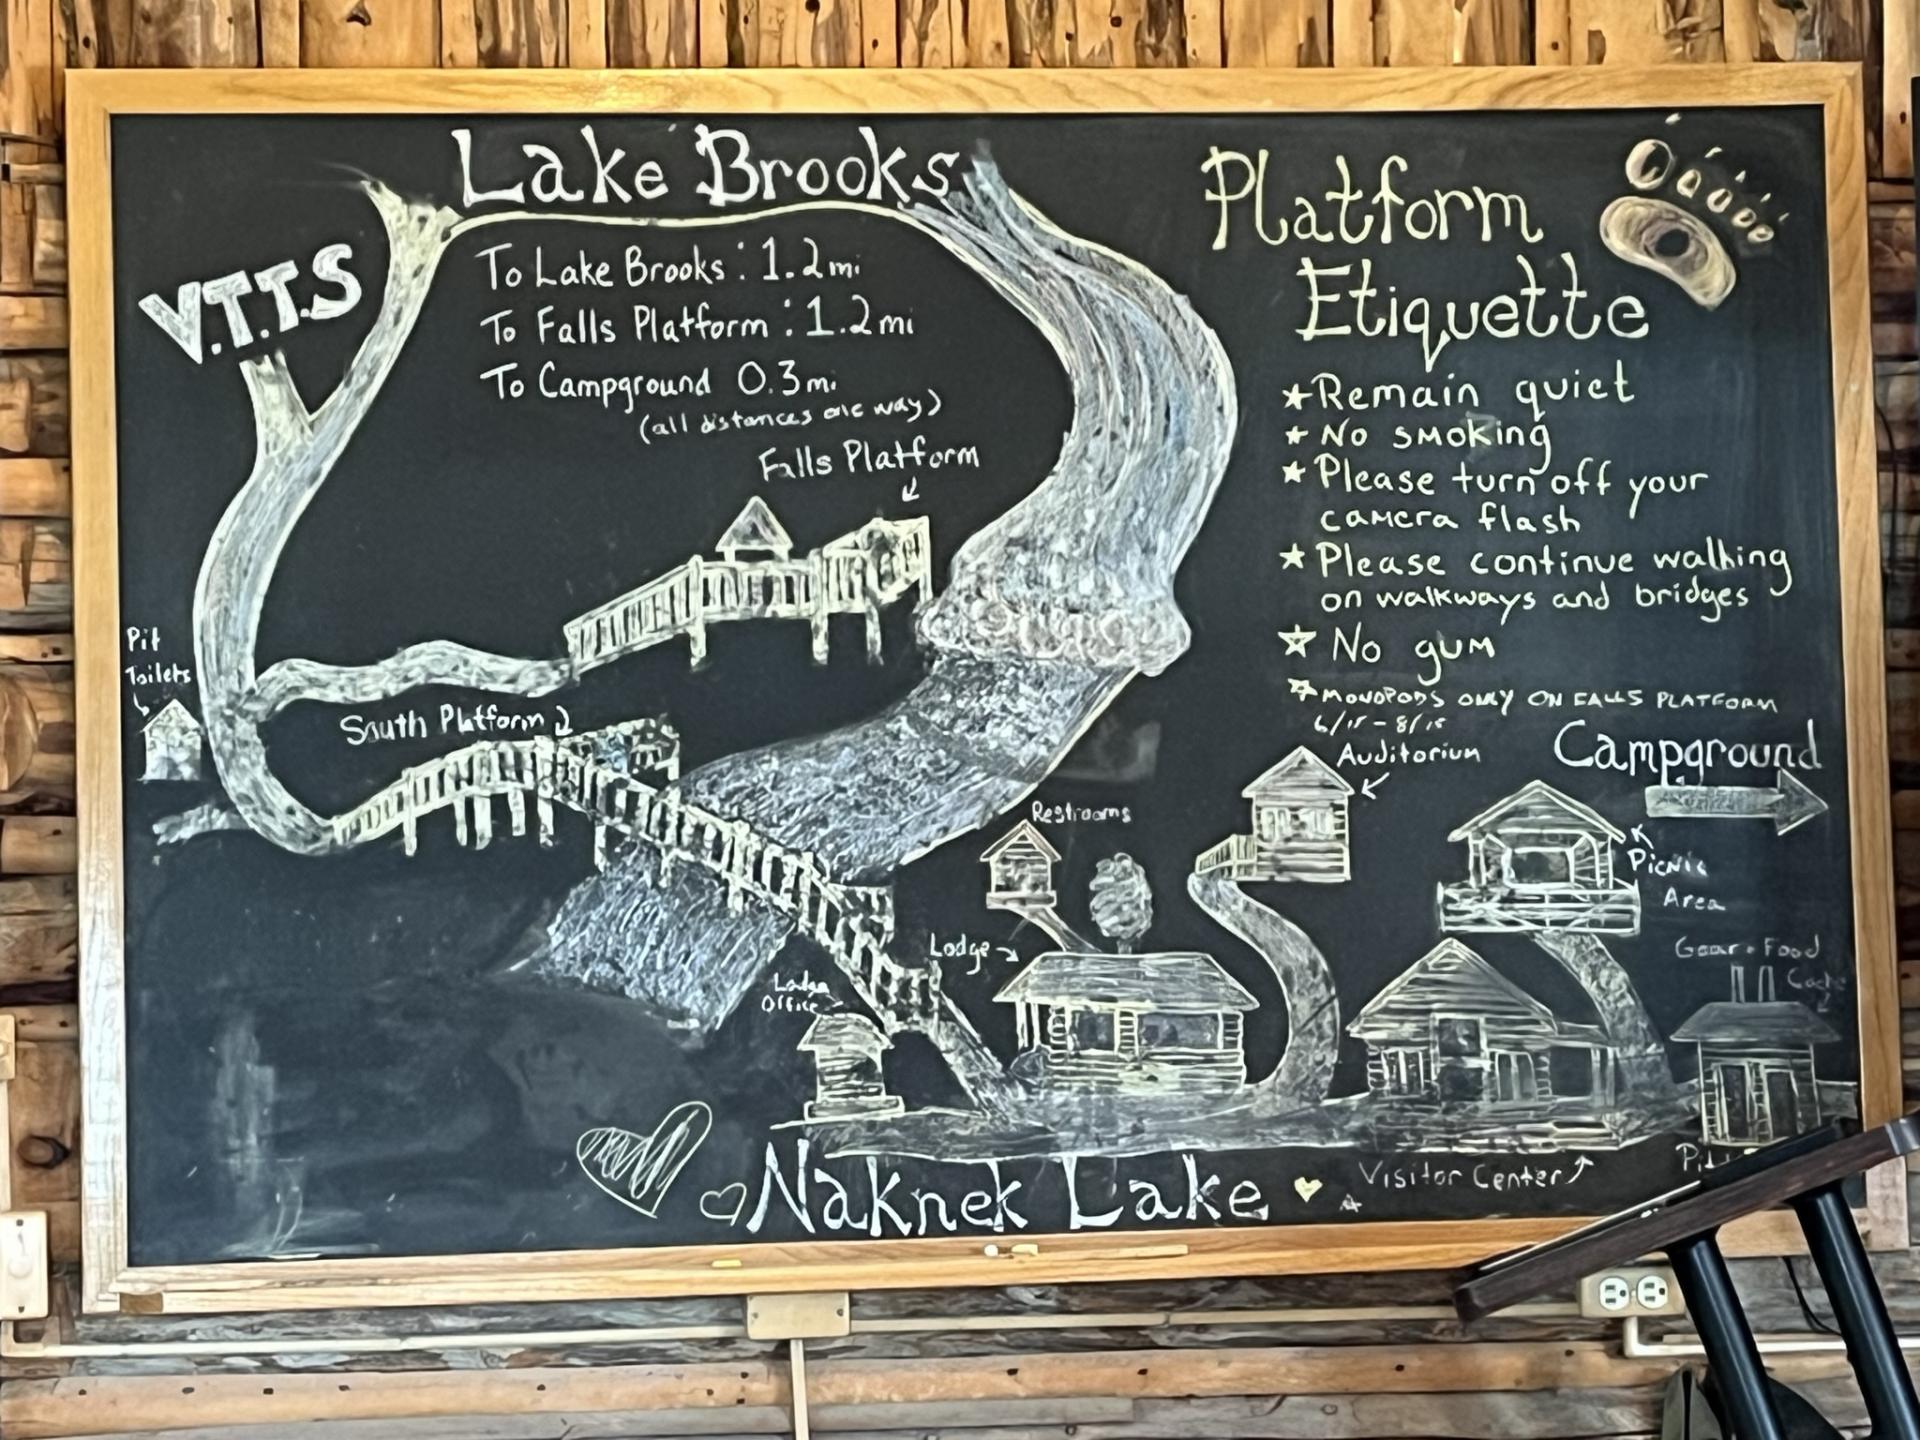 Lake Brooks
V.T.T.S
To Lake Brooks: 1.2 mi
To Falls Platform: 1.2 mi
To Campground 0.3 mi
(all distances one way)
Falls Platform
Pit
Toilets
South Platform
Platform
Etiquette
Remain quiet
No smoking
Please turn off your
camera flash
Please continue walking
on walkways and bridges
No gum
MONOPODS ONLY ON FALLS PLATFORM
6/15 - 8/15
Auditorium
Campground
Restrooms
Picnic
Area
Lodge
Gear + Food
Cache
Lodge
Office
Visitor Center
Naknek Lake